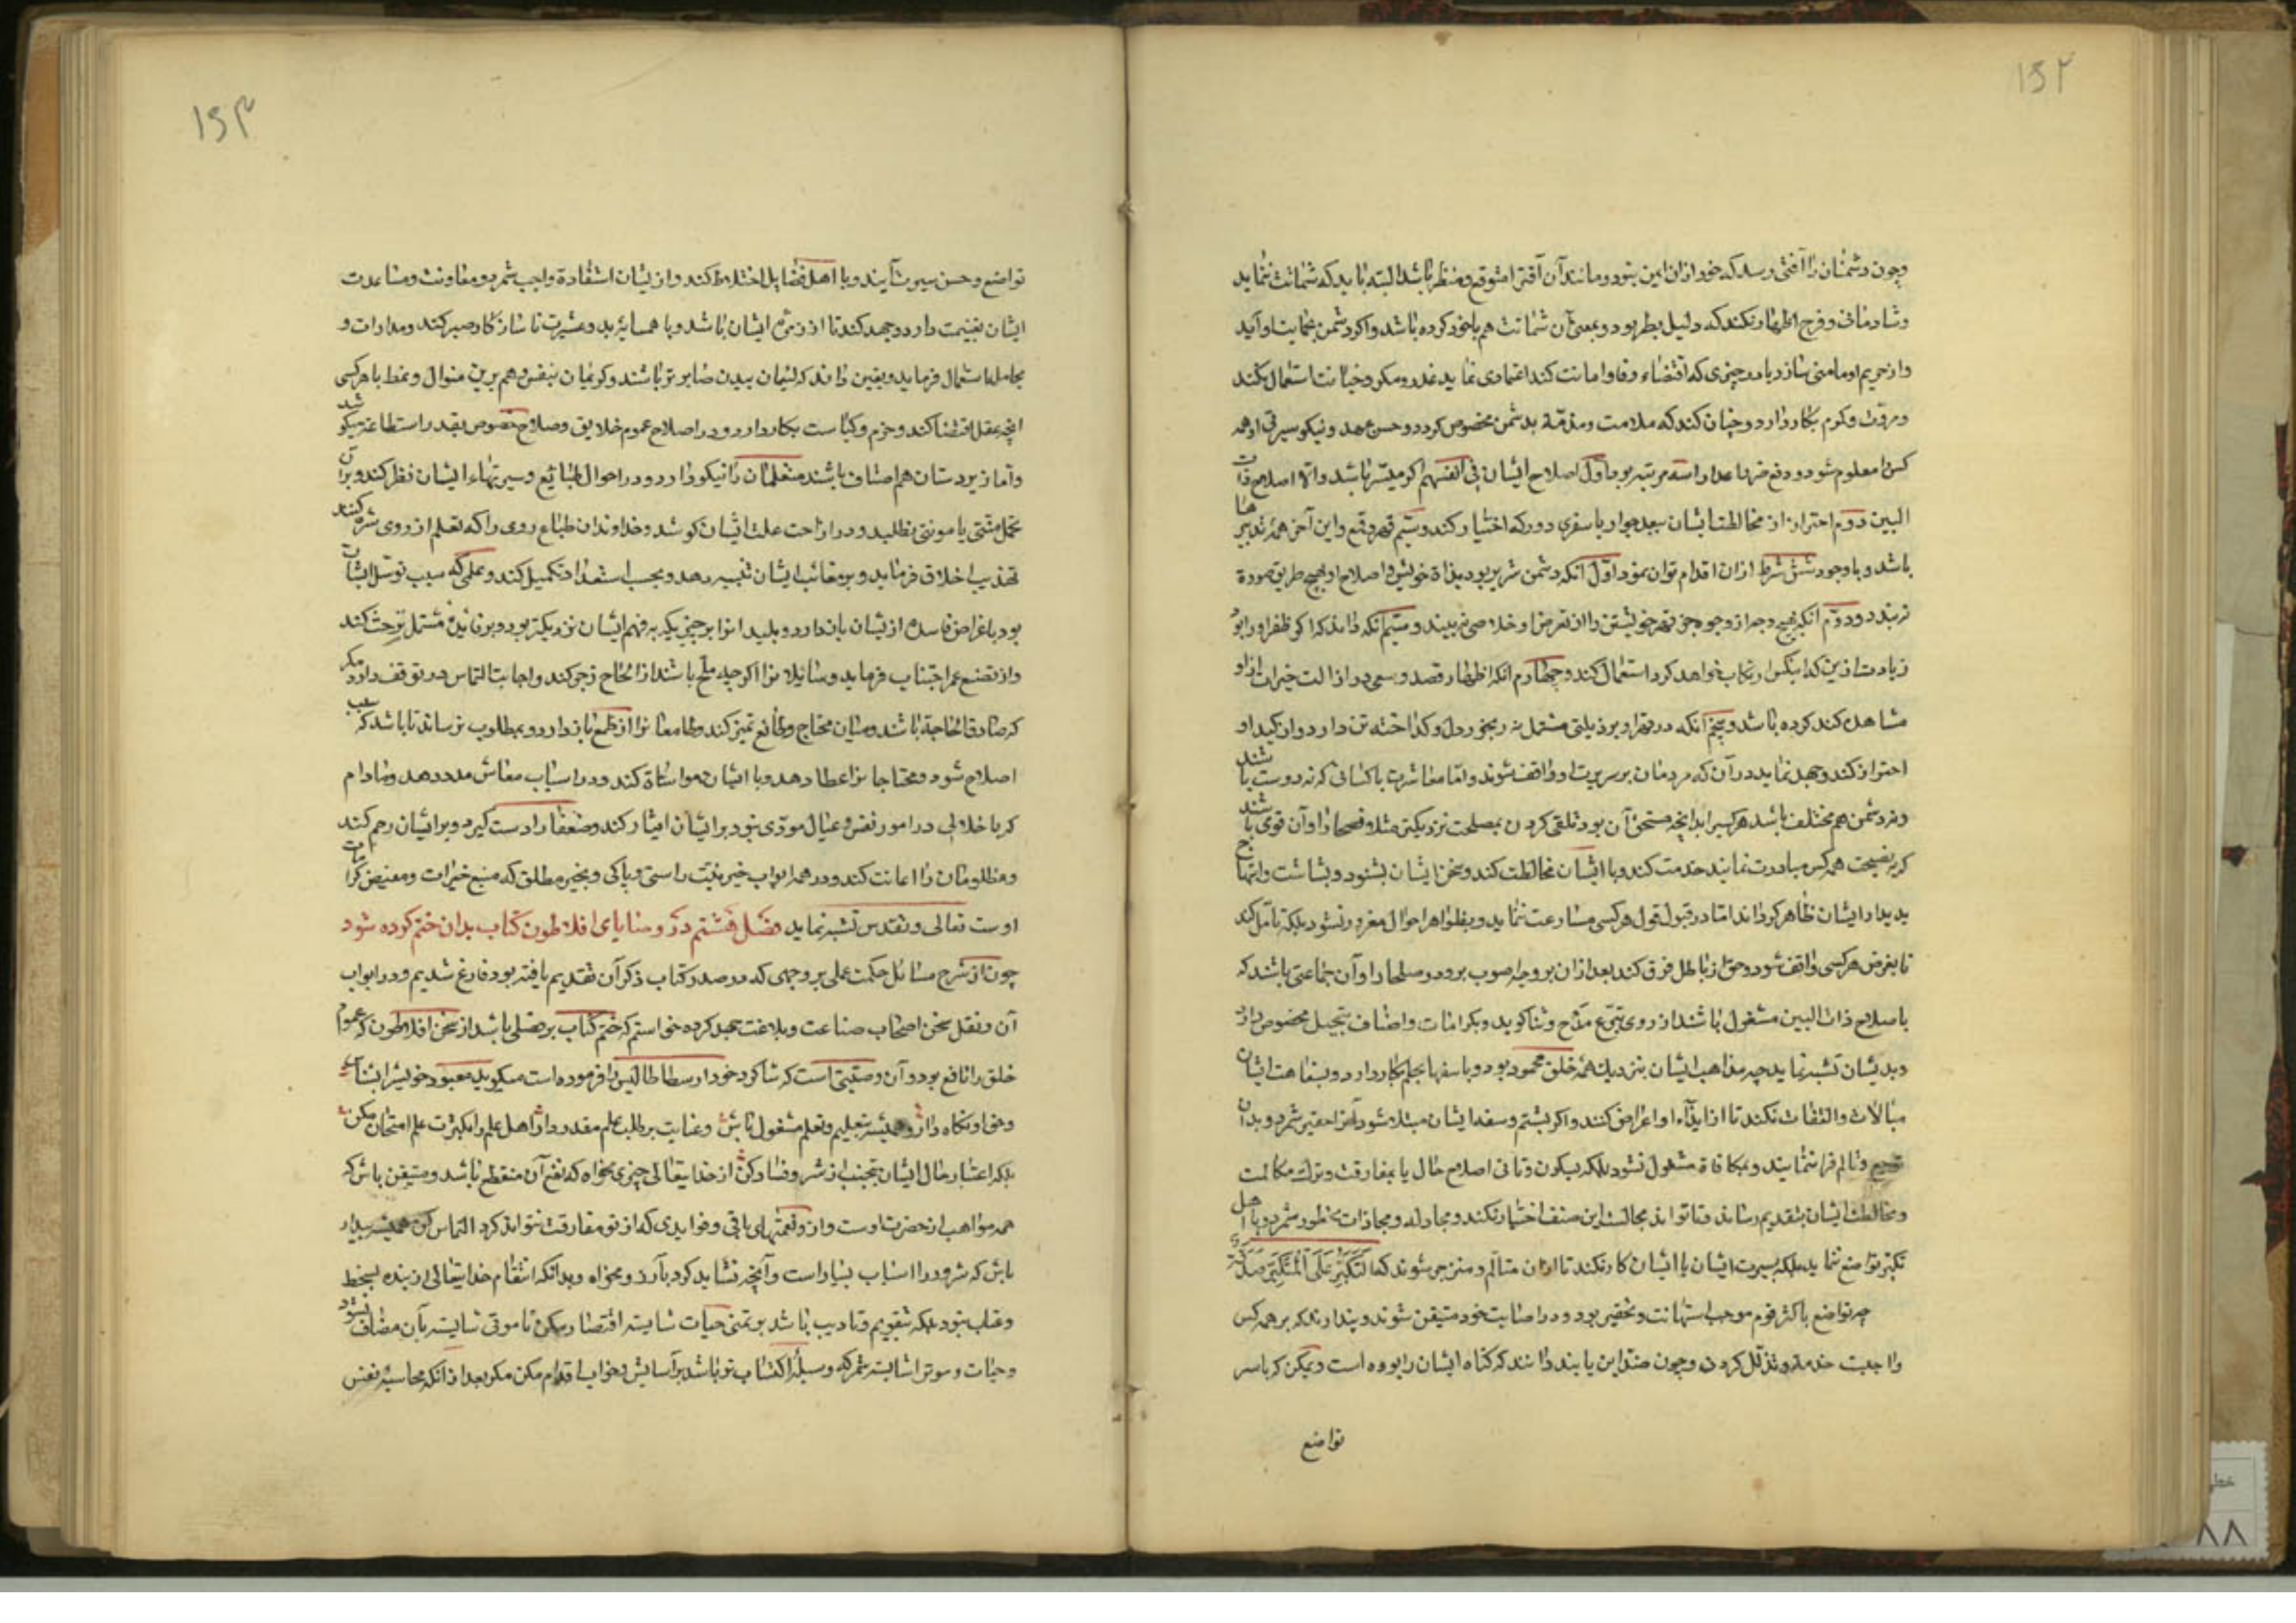 ۱۵۲
وچون دشمنان را آفتی رسد که خود ازان ایمن نبود و مانند آن آفترا متوقع و منتظر باشد البته باید که شماتت ننماید
وشادمانی و فرح اظهار نکند که دلیل بطر بود و بمعنی آن شماتت هم باخود کرده باشد واکر دشمن بحمایت او آید
واز حریم او مامنی سازد یا در چیزی که اقتضاء وفا و امانت کند اعتمادی نماید غدر ومکر وخیانت استعمال نکند
ومروت وکرم بکار دارد وچنان کند که ملامت ومذمة بدشمن مخصوص کردد وحسن عهد و نیکو سیرتی او همه
کس را معلوم شود ودفع ضرر اعدا را سه مرتبه بود اول اصلاح ایشان فی انفسهم اکر میسر باشد والا اصلاح ذات
البین دوم احتراز از مخالطت ایشان ببعد جوار یا سفری دور که اختیار کند وسیم قهر و قمع واین آخر همه تدبیرها
باشد و با وجود شش شرط ازان اقدام توان نمود اول آنکه دشمن شریر بود بذاة خویش و اصلاح او بهیچ طریق صورة
نبندد ودوم آنکه بهیچ وجه از وجوه جز قهر خویشتن را از تعرض او خلاصی نبیند وسیم آنکه داند که اکر ظفر او را بود
زیادت ازین که اینکس ارتکاب خواهد کرد استعمال کند وچهارم آنکه اظهار قصد و سعی در ازالت خیرات از او
مشاهده کند کرده باشد وپنجم آنکه در قهر او برذیلتی مشتمل نه رنجور دل وکداخته تن دارد واز کید او
احتراز کند وجهد نماید در آن که مردمان بر سریرت او واقف شوند واما معاشرت با کسانی که نه دوست باشند
ونه دشمن هم مختلف باشد هرکسیرا بدانچه مستحق آن بود تلقی کردن بمصلحت نزدیکتر مثلا نصحا را وآن قوی باشند
که بنصیحت همه کس مبادرت نمایند خدمت کند وبا ایشان مخالطت کند وسخن ایشان بشنود وبشاشت وابتهاج
بدیدار ایشان ظاهر کرداند اما در قبول قول هر کسی مسارعت ننماید وبظواهر احوال مغرور نشود بلکه تامل کند
تا بغرض هرکسی واقف شود وحق از باطل فرق کند بعد ازان بر وجه اصوب برود وصلحا را وآن جماعتی باشند که
باصلاح ذات البین مشغول باشند از روی تبرع مدح وثنا کوید وبکرامات واصناف تبجیل مخصوص دارد
وبدیشان تشبه نماید چه مذاهب ایشان بنزدیک همه خلق محمود بود وبا سفها بحلم بکار دارد وبسفاهت ایشان
مبالات والتفات نکند تا از ایذاء او اعراض کنند واکر بشتم وسفه ایشان مبتلا شود آنرا حقیر شمرد وبدان
وتالم فرا ننمایند وبمکافاة مشغول نشود بلکه بسکون وتانی اصلاح حال یا بمفارقت وترک مکالمت
ومخالطت ایشان بتقدیم رساند وتا تواند مجالست این صنف اختیار نکند ومجادله ومجازات محظور شمرد وبا اهل
تکبر تواضع ننماید بلکه بسیرت ایشان با ایشان کار نکند تا ازان متالم ومنزجر شوند که التکبر علی المتکبر صدقة
چه تواضع با کثر قوم موجب استهانت وتحقیر بود ودر اصابت خود متیقن شوند وپندارند که بر همه کس
واجبست خدمت وتذلل کردن وچون ضد این یابند دانند که کناه ایشان را بوده است وممکن که باسر
تواضع
۱۵۳
تواضع وحسن سیرت آیند وبا اهل فضایل اختلاط کند واز یشان استفادة واجب شمرد ومعاونت ومساعدت
ایشان بغنیمت دارد وجهد کند تا از زمرة ایشان باشد وبا همسایه بد وعشیرت ناسازکار صبر کند ومدارات و
مجاملت استعمال فرماید ویقین داند که لئیمان ببدن صابرتر باشند وکریمان بنفس وهم برین منوال ونمط با هرکسی
آنچه عقل اقتضا کند وحزم وکیاست بکار دارد ودر اصلاح عموم خلایق وصلاح خصوص بقدر استطاعة میکوشد
واما زیردستان هم اصناف باشند متعلمان را نیکو دارد ودر احوال طبایع وسیرتهاء ایشان نظر کند وبر آن
تحمل مشقتی یا مونتی نطلبد ودر ازاحت علت ایشان کوشد وخداوندان طباع ردی را که تعلم از روی شره کنند
تهذیب اخلاق فرماید وبر معایب ایشان تنبیه دهد وبحسب استعداد تکمیل کند وعلمی که سبب توسل ایشان
بود باغراض فاسده ازیشان بازدارد وبلیدانرا بر چیزیکه بفهم ایشان نزدیکتر بود وبر فایده مشتمل تر حث کند
واز تضییع عمر اجتناب فرماید وسایلانرا اکرچه ملح باشند از الحاح زجر کند واجابت التماس در توقف دارد مکر
که صادق الحاجة باشند ومیان محتاج وطامع تمیز کند وطامعانرا از طمع بازدارد وبمطلوب نرساند تا باشد که سبب
اصلاح شود ومحتاجانرا عطا دهد وبا ایشان مواساة کند ودر اسباب معاش مدد دهد ومادام
که باخلالی در امور نفس وعیال مودی نبود بر ایشان ایثار کند وضعفا را دست کیرد وبر ایشان رحم کند
ومظلومان را اعانت کند ودر همه ابواب خیر نیت راستی وپاکی وبخیر مطلق که منبع خیرات ومفیض کرامات
اوست تعالی وتقدس تشبه نماید فصل هشتم در وصایای افلاطون کتاب بدان ختم کرده شود
چون از شرح مسائل حکمت عملی بر وجهی که در صدر کتاب ذکر آن تقدیم یافته بود فارغ شدیم ودر ابواب
آن ونقل سخن اصحاب صناعت وبلاغت جهد کرده خواستم که ختم کتاب بر فصلی باشد از سخن افلاطون که عموم
خلق را نافع بود وآن وصیتی است که شاکرد خود ارسطاطالیس را فرموده است میکوید معبود خویشرا بشناس
وحق او نکاه دار وهمیشه بتعلیم وتعلم مشغول باش وعنایت بر طلب علم مقدر دار واهل علم را بکثرت علم امتحان مکن
بلکه اعتبار حال ایشان بتجنب از شر وفساد کن از خدایتعالی چیزی مخواه که نفع آن منقطع باشد ومتیقن باش که
همه مواهب از حضرت اوست وازو نعمتهای باقی وفوایدی که از تو مفارقت نتواند کرد التماس کن همیشه بیدار
باش که شرور را اسباب بسیار است وآنچه نشاید کرد بآرزو مخواه وبدانکه انتقام خدایتعالی از بنده بسخط
وعتاب نبود بلکه بتقویم وتادیب باشد بر تمنی حیات شایسته اقتصار مکن تا موتی شایسته بآن مضاف نشود
وحیات وموترا شایسته مشمر که وسیلة اکتساب بر تو باشد بر آسایش وخواب اقدام مکن مکر بعد ازانکه محاسبه نفس